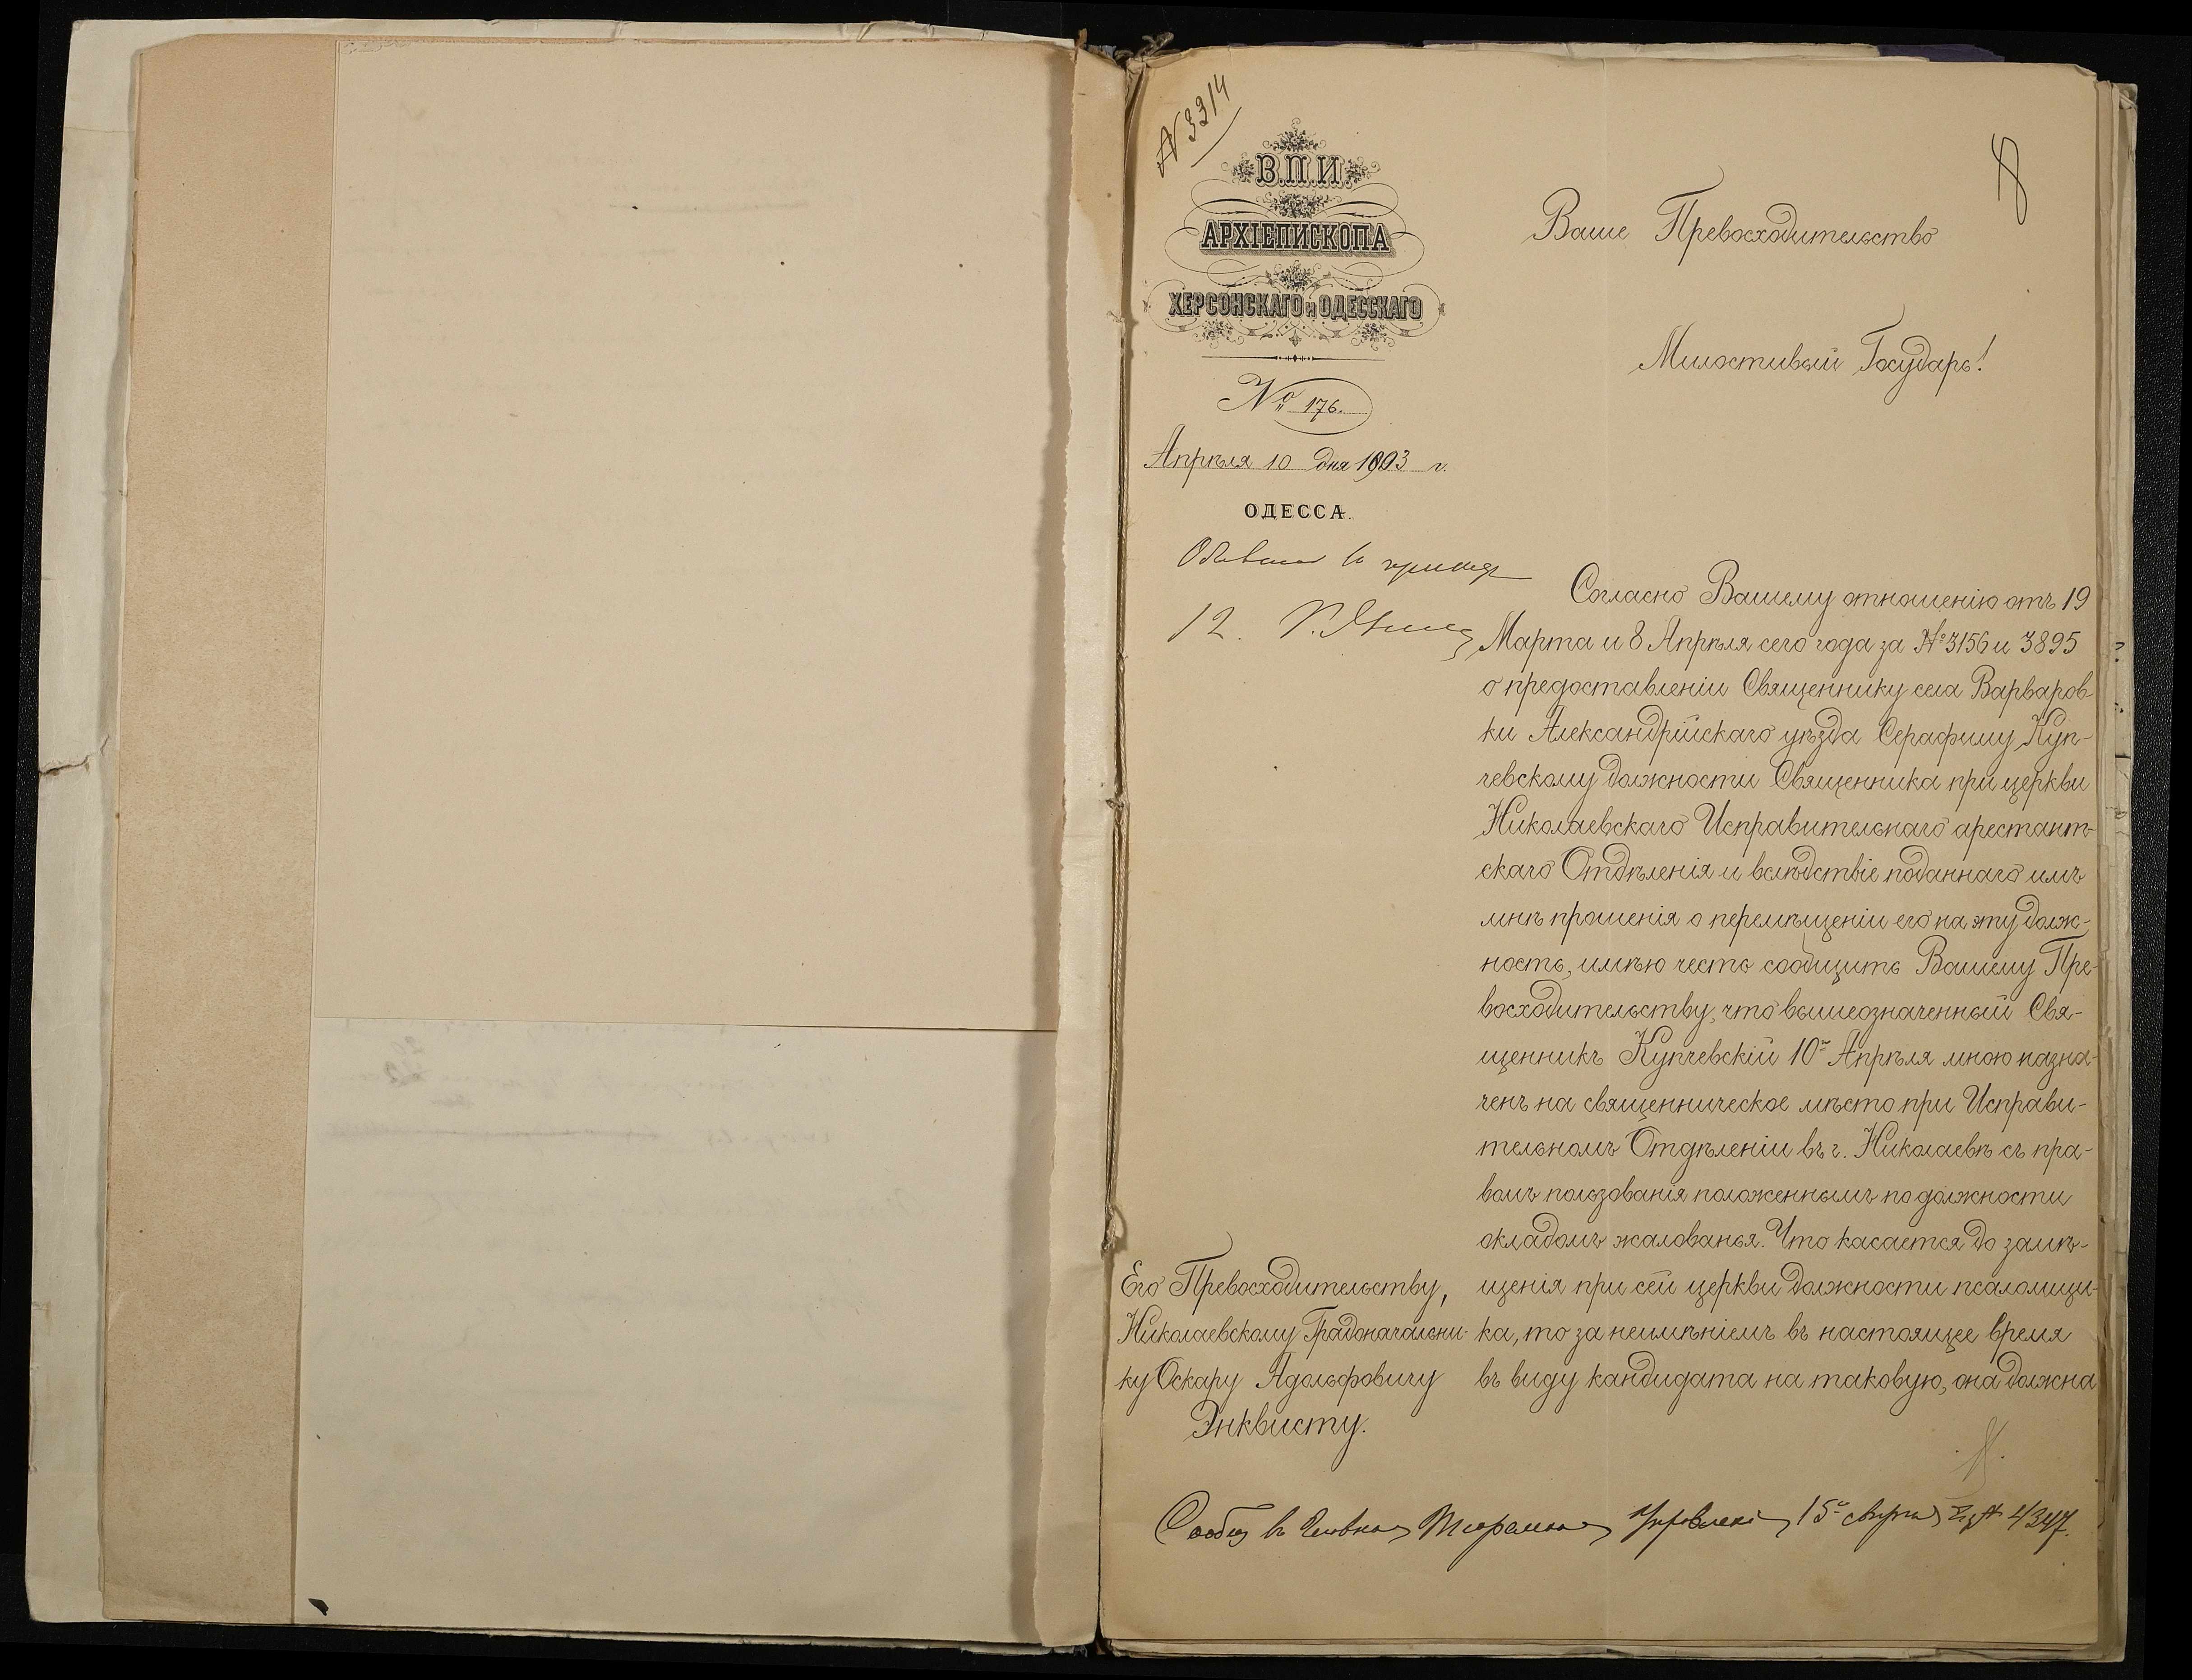 № 3314
8
В.П.И.
АРХІЕПИСКОПА
ХЕРСОНСКАГО и ОДЕССКАГО
№ 176.
Апрѣля 10 дня 1903 г.
ОДЕССА.
12.
Ваше Превосходительство
Милостивый Государь!
Согласно Вашему отношенію отъ 19
Марта и 8 Апрѣля сего года за № 3156 и 3895
о предоставленіи Священнику села Варваров-
ки Александрійскаго уѣзда Серафиму Куп-
чевскому должности Священника при церкви
Николаевскаго Исправительнаго арестант-
скаго Отдѣленія и вслѣдствіе поданнаго имъ
мнѣ прошенія о перемѣщеніи его на эту долж-
ность, имѣю честь сообщить Вашему Пре-
восходительству, что вышеозначенный Свя-
щенникъ Купчевскій 10го Апрѣля мною назна-
ченъ на священническое мѣсто при Исправи-
тельномъ Отдѣленіи въ г. Николаевѣ съ пра-
вомъ пользованія положеннымъ по должности
окладомъ жалованья. Что касается до замѣ-
щенія при сей церкви должности псаломщи-
ка, то за неимѣніемъ въ настоящее время
въ виду кандидата на таковую, она должна
Его Превосходительству,
Николаевскому Градоначальни-
ку Оскару Адольфовичу
Энквисту.
Сообщ въ Главное Тюремное Управленіе 15 Апрѣля за № 4347.